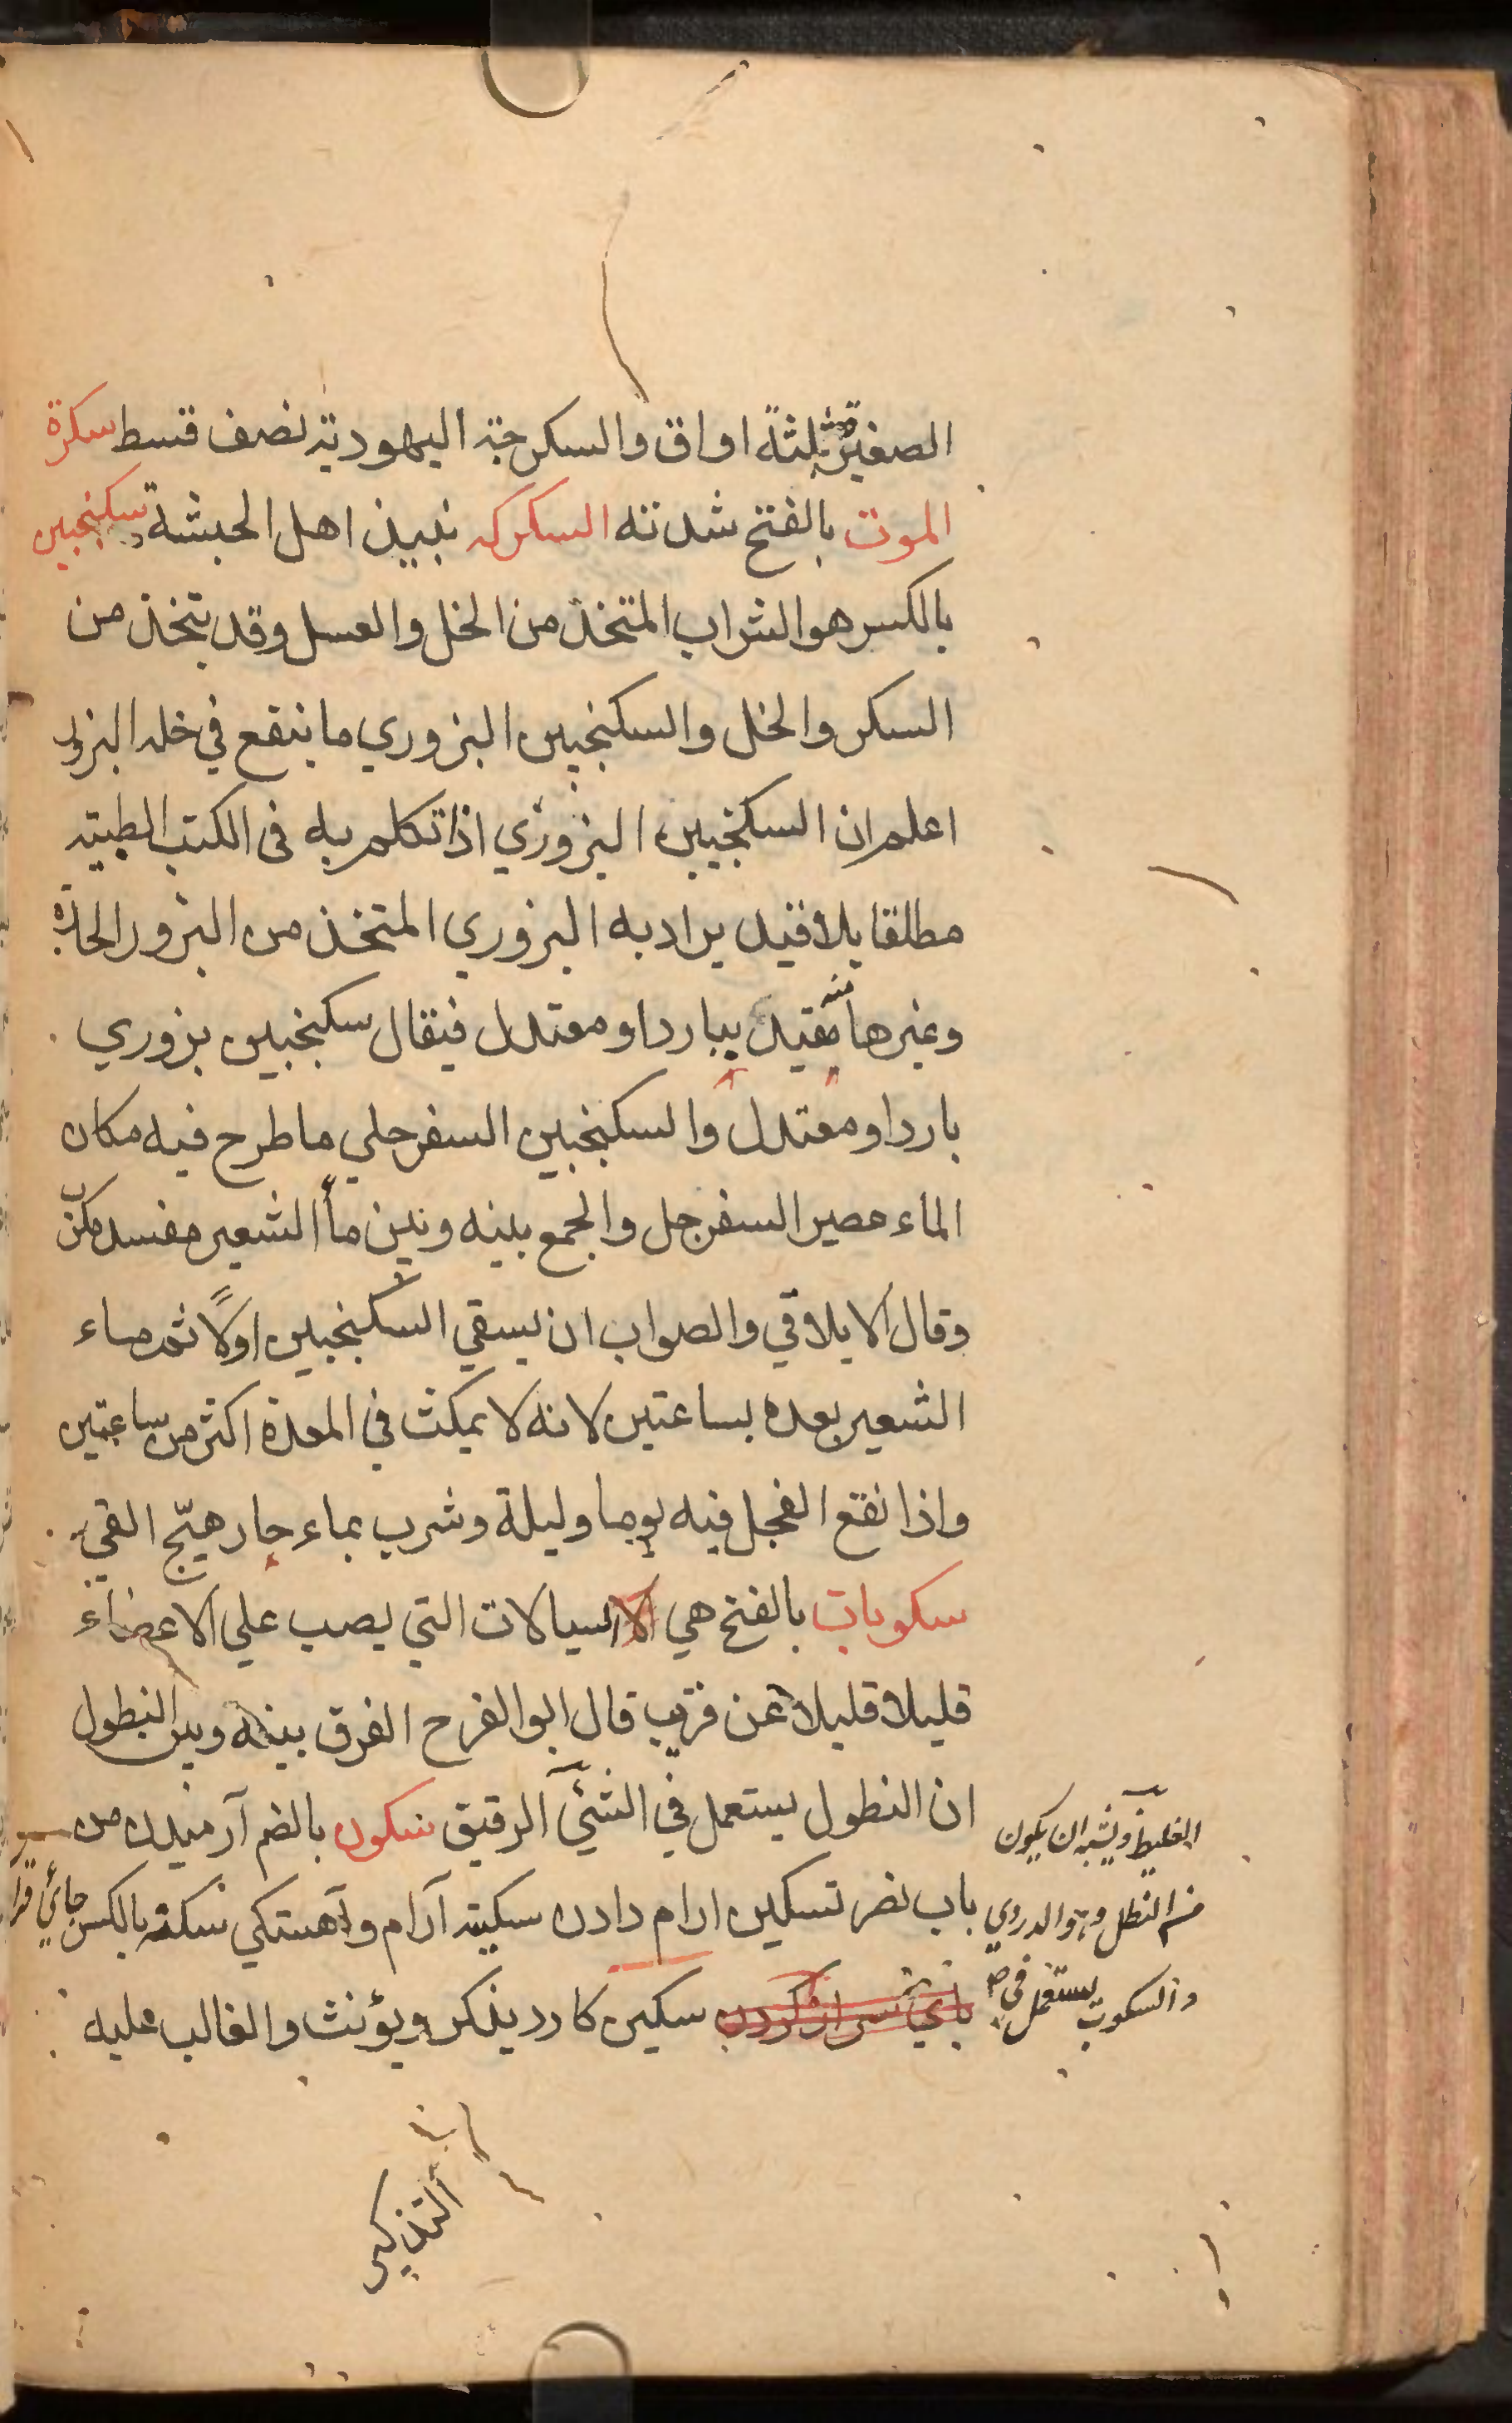 الصغيرة ثلثة اواق والسكرجة اليهودية نصف قسط سكرة
الموت بالفتح شدته السكركه نبيذ اهل الحبشة سكنجبين
بالكسر هو الشراب المتخذ من الخل والعسل وقد يتخذ من
السكر والخل والسكنجبين البزوري ما ينقع في خله البزور
اعلم ان السكنجبين البزوري اذا تكلم به في الكتب الطبية
مطلقا بلا قيد يراد به البزوري المتخذ من البزور الحارة
وغيرها يقيد ببارد او معتدل فيقال سكنجبين بزوري
بارد او معتدل والسكنجبين السفرجلي ما طرح فيه مكان
الماء عصير السفرجل والجمع بينه وبين ماء الشعير مفسد مكرب
وقال الايلاقي والصواب ان يسقي السكنجبين اولاً ثم ماء
الشعير بعده بساعتين لانه لا يمكث في المعدة اكثر من ساعتين
واذا نقع الفجل فيه يوما وليلة وشرب بماء حار هيّج القيء
سكوبات بالفتح هي السيالات التي يصب علي الاعضاء
قليلا قليلا عن قريب قال ابو الفرح الفرق بينه وبين النطول
ان النطول يستعمل في الشئ الرقيق سكون بالضم آرميدن من
باب نصر تسكين ارام دادن سكينة آرام وآهستكي سكنه بالكسر جائي قرار
سكين كارد يذكر ويؤنث والغالب عليه
التذكير
الغليظ ويشبه ان يكون
من النطل وهو الدردي
والسكوب يستعمل في